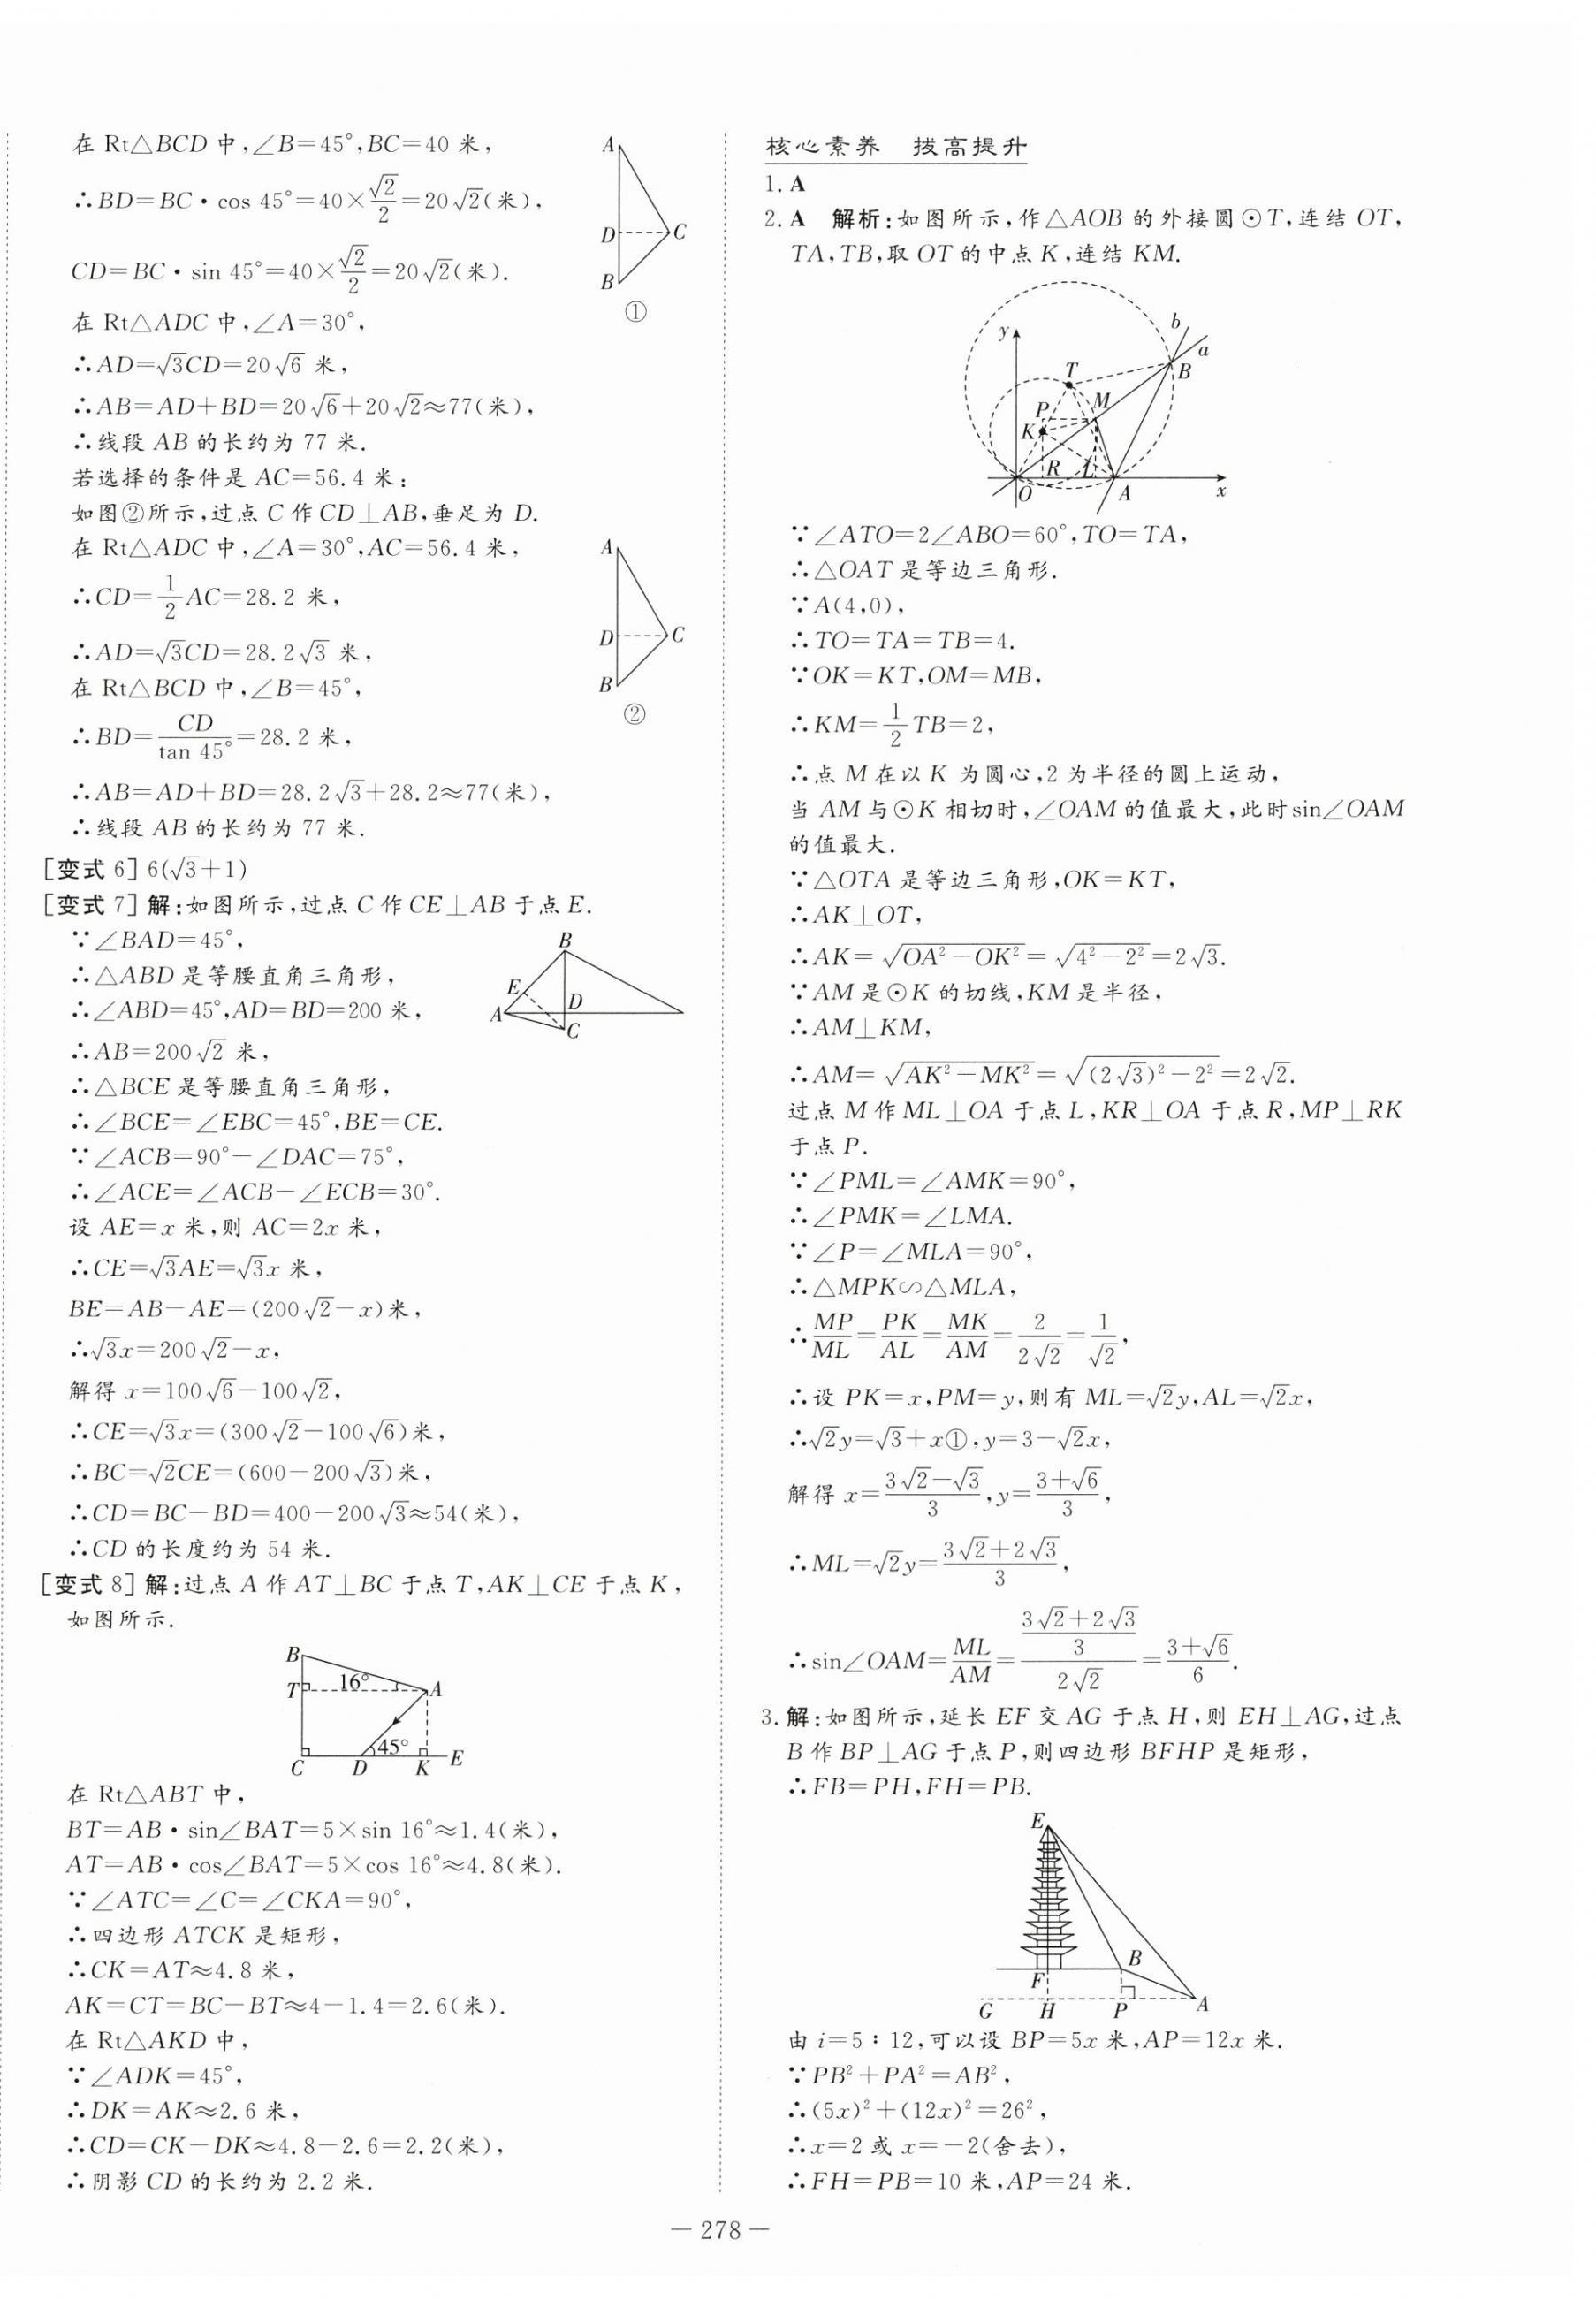 在 Rt△BCD 中,∠B=45°,BC=40 米,
∴BD=BC·cos 45°=40×√2/2=20√2(米),
CD=BC·sin 45°=40×√2/2=20√2(米).
在 Rt△ADC 中,∠A=30°,
∴AD=√3CD=20√6 米,
∴AB=AD+BD=20√6+20√2≈77(米),
∴线段 AB 的长约为 77 米.
若选择的条件是 AC=56.4 米:
如图②所示,过点 C 作 CD⊥AB,垂足为 D.
在 Rt△ADC 中,∠A=30°,AC=56.4 米,
∴CD=1/2 AC=28.2 米,
∴AD=√3CD=28.2√3 米,
在 Rt△BCD 中,∠B=45°,
∴BD=CD/tan 45°=28.2 米,
∴AB=AD+BD=28.2√3+28.2≈77(米),
∴线段 AB 的长约为 77 米.
A
D
C
B
①
A
D
C
B
②
[变式 6] 6(√3+1)
[变式 7] 解:如图所示,过点 C 作 CE⊥AB 于点 E.
∵∠BAD=45°,
∴△ABD 是等腰直角三角形,
∴∠ABD=45°,AD=BD=200 米,
∴AB=200√2 米,
∴△BCE 是等腰直角三角形,
∴∠BCE=∠EBC=45°,BE=CE.
∵∠ACB=90°-∠DAC=75°,
∴∠ACE=∠ACB-∠ECB=30°.
设 AE=x 米,则 AC=2x 米,
∴CE=√3AE=√3x 米,
BE=AB-AE=(200√2-x)米,
∴√3x=200√2-x,
解得 x=100√6-100√2,
∴CE=√3x=(300√2-100√6)米,
∴BC=√2CE=(600-200√3)米,
∴CD=BC-BD=400-200√3≈54(米),
∴CD 的长度约为 54 米.
B
E
D
A
C
[变式 8] 解:过点 A 作 AT⊥BC 于点 T,AK⊥CE 于点 K,
如图所示.
B
16°
T
A
45°
E
C D K
在 Rt△ABT 中,
BT=AB·sin∠BAT=5×sin 16°≈1.4(米),
AT=AB·cos∠BAT=5×cos 16°≈4.8(米).
∵∠ATC=∠C=∠CKA=90°,
∴四边形 ATCK 是矩形,
∴CK=AT≈4.8 米,
AK=CT=BC-BT≈4-1.4=2.6(米).
在 Rt△AKD 中,
∵∠ADK=45°,
∴DK=AK≈2.6 米,
∴CD=CK-DK≈4.8-2.6=2.2(米),
∴阴影 CD 的长约为 2.2 米.
核心素养 拔高提升
1. A
2. A 解析:如图所示,作△AOB 的外接圆⊙T,连结 OT,
TA,TB,取 OT 的中点 K,连结 KM.
b
y
a
T
B
P
M
K
R L
O
A
x
∵∠ATO=2∠ABO=60°,TO=TA,
∴△OAT 是等边三角形.
∵A(4,0),
∴TO=TA=TB=4.
∵OK=KT,OM=MB,
∴KM=1/2 TB=2,
∴点 M 在以 K 为圆心,2 为半径的圆上运动,
当 AM 与⊙K 相切时,∠OAM 的值最大,此时sin∠OAM
的值最大.
∵△OTA 是等边三角形,OK=KT,
∴AK⊥OT,
∴AK=√(OA²-OK²)=√(4²-2²)=2√3.
∵AM 是⊙K 的切线,KM 是半径,
∴AM⊥KM,
∴AM=√(AK²-MK²)=√((2√3)²-2²)=2√2.
过点 M 作 ML⊥OA 于点 L,KR⊥OA 于点 R,MP⊥RK
于点 P.
∵∠PML=∠AMK=90°,
∴∠PMK=∠LMA.
∵∠P=∠MLA=90°,
∴△MPK∽△MLA,
∴MP/ML=PK/AL=MK/AM=2/(2√2)=1/√2,
∴设 PK=x,PM=y,则有 ML=√2y,AL=√2x,
∴√2y=√3+x①,y=3-√2x,
解得 x=(3√2-√3)/3,y=(3+√6)/3,
∴ML=√2y=(3√2+2√3)/3,
∴sin∠OAM=ML/AM=((3√2+2√3)/3)/(2√2)=(3+√6)/6.
3. 解:如图所示,延长 EF 交 AG 于点 H,则 EH⊥AG,过点
B 作 BP⊥AG 于点 P,则四边形 BFHP 是矩形,
∴FB=PH,FH=PB.
E
B
F
G H P A
由 i=5∶12,可以设 BP=5x 米,AP=12x 米.
∵PB²+PA²=AB²,
∴(5x)²+(12x)²=26²,
∴x=2 或 x=-2(舍去),
∴FH=PB=10 米,AP=24 米.
— 278 —